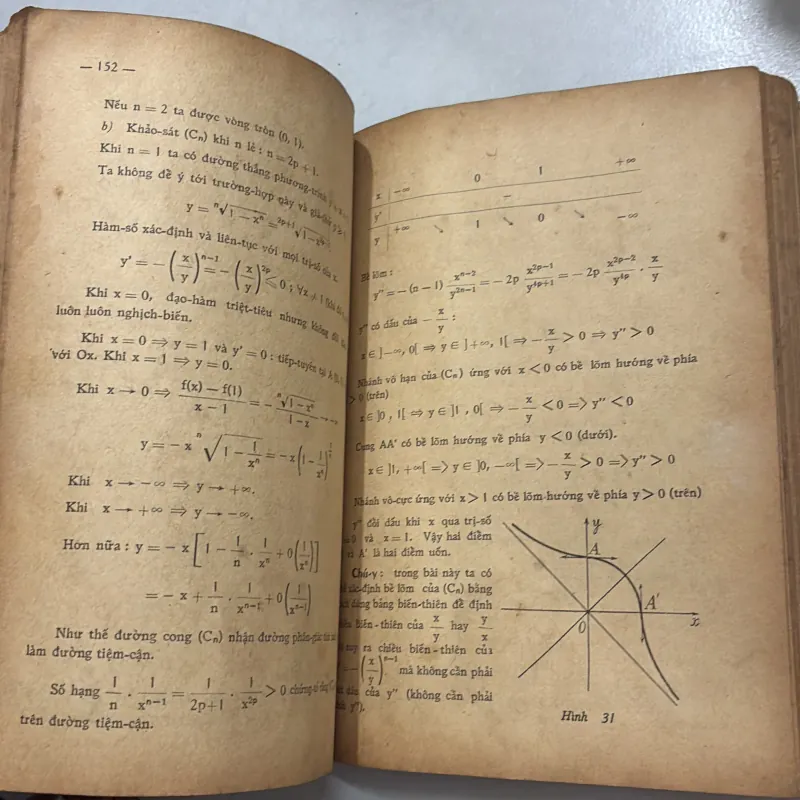 — 152 —
Nếu n = 2 ta được vòng tròn (0, 1).
b) Khảo-sát (Cₙ) khi n lẻ : n = 2p + 1.
Khi n = 1 ta có đường thẳng phương-trình
Ta không để ý tới trường-hợp này và giả-thử
y = ⁿ√(1 — xⁿ) = ²ᵖ⁺¹√(1 — xⁿ)
Hàm-số xác-định và liên-tục với mọi trị-số của x.
y' = — (x/y)ⁿ⁻¹ = — (x/y)²ᵖ ≤ 0 ; ∀x ≠ 1
Khi x = 0, đạo-hàm triệt-tiêu nhưng không đổi
luôn luôn nghịch-biến.
Khi x = 0 ⇒ y = 1 và y' = 0 : tiếp-tuyến tại A
với Ox. Khi x = 1 ⇒ y = 0.
Khi x → 0 ⇒ (f(x) — f(1))/(x — 1) = — ⁿ√(1 — xⁿ)/(1 — x)
y = — x ⁿ√(1 — 1/xⁿ) = — x (1 — 1/xⁿ)
Khi x → — ∞ ⇒ y → +∞.
Khi x → + ∞ ⇒ y → — ∞.
Hơn nữa : y = — x [1 — 1/n · 1/xⁿ + 0(1/xⁿ)]
= — x + 1/n · 1/xⁿ⁻¹ + 0(1/xⁿ⁻¹)
Như thế đường cong (Cₙ) nhận đường phân-giác
làm đường tiệm-cận.
Số hạng 1/n · 1/xⁿ⁻¹ = 1/(2p+1) · 1/x²ᵖ > 0 chứng-tỏ
trên đường tiệm-cận.
x —∞ 0 1 +∞
y' —
y +∞ ↘ 1 ↘ 0 ↘ —∞
Bề lõm :
y" = — (n — 1) xⁿ⁻²/y²ⁿ⁻¹ = — 2p x²ᵖ⁻¹/y⁴ᵖ⁺¹ = — 2p x²ᵖ⁻²/y⁴ᵖ · x/y
y" có dấu của — x/y :
x ∈ ]—∞, 0[ ⇒ y ∈ ]+∞, 1[ ⇒ — x/y > 0 ⇒ y" > 0
Nhánh vô hạn của (Cₙ) ứng với x < 0 có bề lõm hướng về phía
> 0 (trên)
x ∈ ]0, 1[ ⇒ y ∈ ]1, 0[ ⇒ — x/y < 0 => y" < 0
Cung AA' có bề lõm hướng về phía y < 0 (dưới).
x ∈ ]1, +∞[ => y ∈ ]0, —∞[ => — x/y > 0 => y" > 0
Nhánh vô-cực ứng với x > 1 có bề lõm hướng về phía y > 0 (trên)
y" đổi dấu khi x qua trị-số
= 0 và x = 1. Vậy hai điểm
A' là hai điểm uốn.
Chú-ý : trong bài này ta có
xác-định bề lõm của (Cₙ) bằng
dùng bảng biến-thiên để định
biến-thiên của x/y hay y/x
ra chiều biến-thiên của
— (x/y)ⁿ⁻¹ mà không cần phải
dấu của y" (không cần phải
y").
y
A
A'
0
x
Hình 31